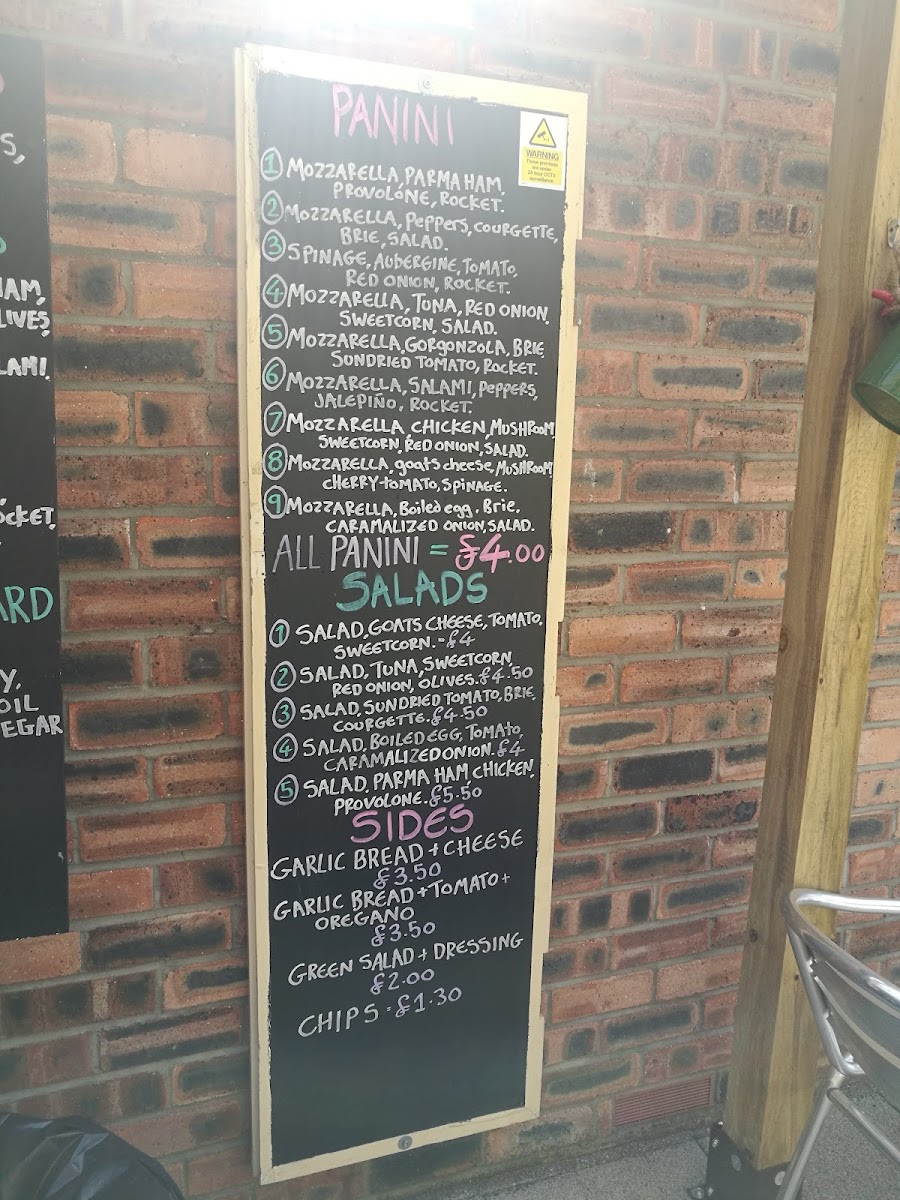 PANINI
WARNING
These premises
are under
24 hour CCTV
surveillance
1 MOZZARELLA, PARMA HAM,
PROVOLONE, ROCKET.
2 MOZZARELLA, PEPPERS, COURGETTE,
BRIE, SALAD.
3 SPINAGE, AUBERGINE, TOMATO,
RED ONION, ROCKET.
4 MOZZARELLA, TUNA, RED ONION,
SWEETCORN, SALAD.
5 MOZZARELLA, GORGONZOLA, BRIE,
SUNDRIED TOMATO, ROCKET.
6 MOZZARELLA, SALAMI, PEPPERS,
JALEPIÑO, ROCKET.
7 MOZZARELLA, CHICKEN, MUSHROOM,
SWEETCORN, RED ONION, SALAD.
8 MOZZARELLA, goats cheese, MUSHROOM,
CHERRY-TOMATO, SPINAGE.
9 MOZZARELLA, Boiled egg, Brie,
CARAMALIZED ONION, SALAD.
ALL PANINI = £4.00
SALADS
1 SALAD, GOATS CHEESE, TOMATO,
SWEETCORN.=£4
2 SALAD, TUNA, SWEETCORN,
RED ONION, OLIVES.£4.50
3 SALAD, SUNDRIED TOMATO, BRIE,
COURGETTE.£4.50
4 SALAD, BOILED EGG, TOMATO,
CARAMALIZED ONION.£4
5 SALAD, PARMA HAM, CHICKEN,
PROVOLONE.£5.50
SIDES
GARLIC BREAD + CHEESE
£3.50
GARLIC BREAD + TOMATO +
OREGANO
£3.50
GREEN SALAD + DRESSING
£2.00
CHIPS = £1.30
S,
HAM,
LIVES
LAMI.
OCKET,
ARD
Y,
OIL
EGAR